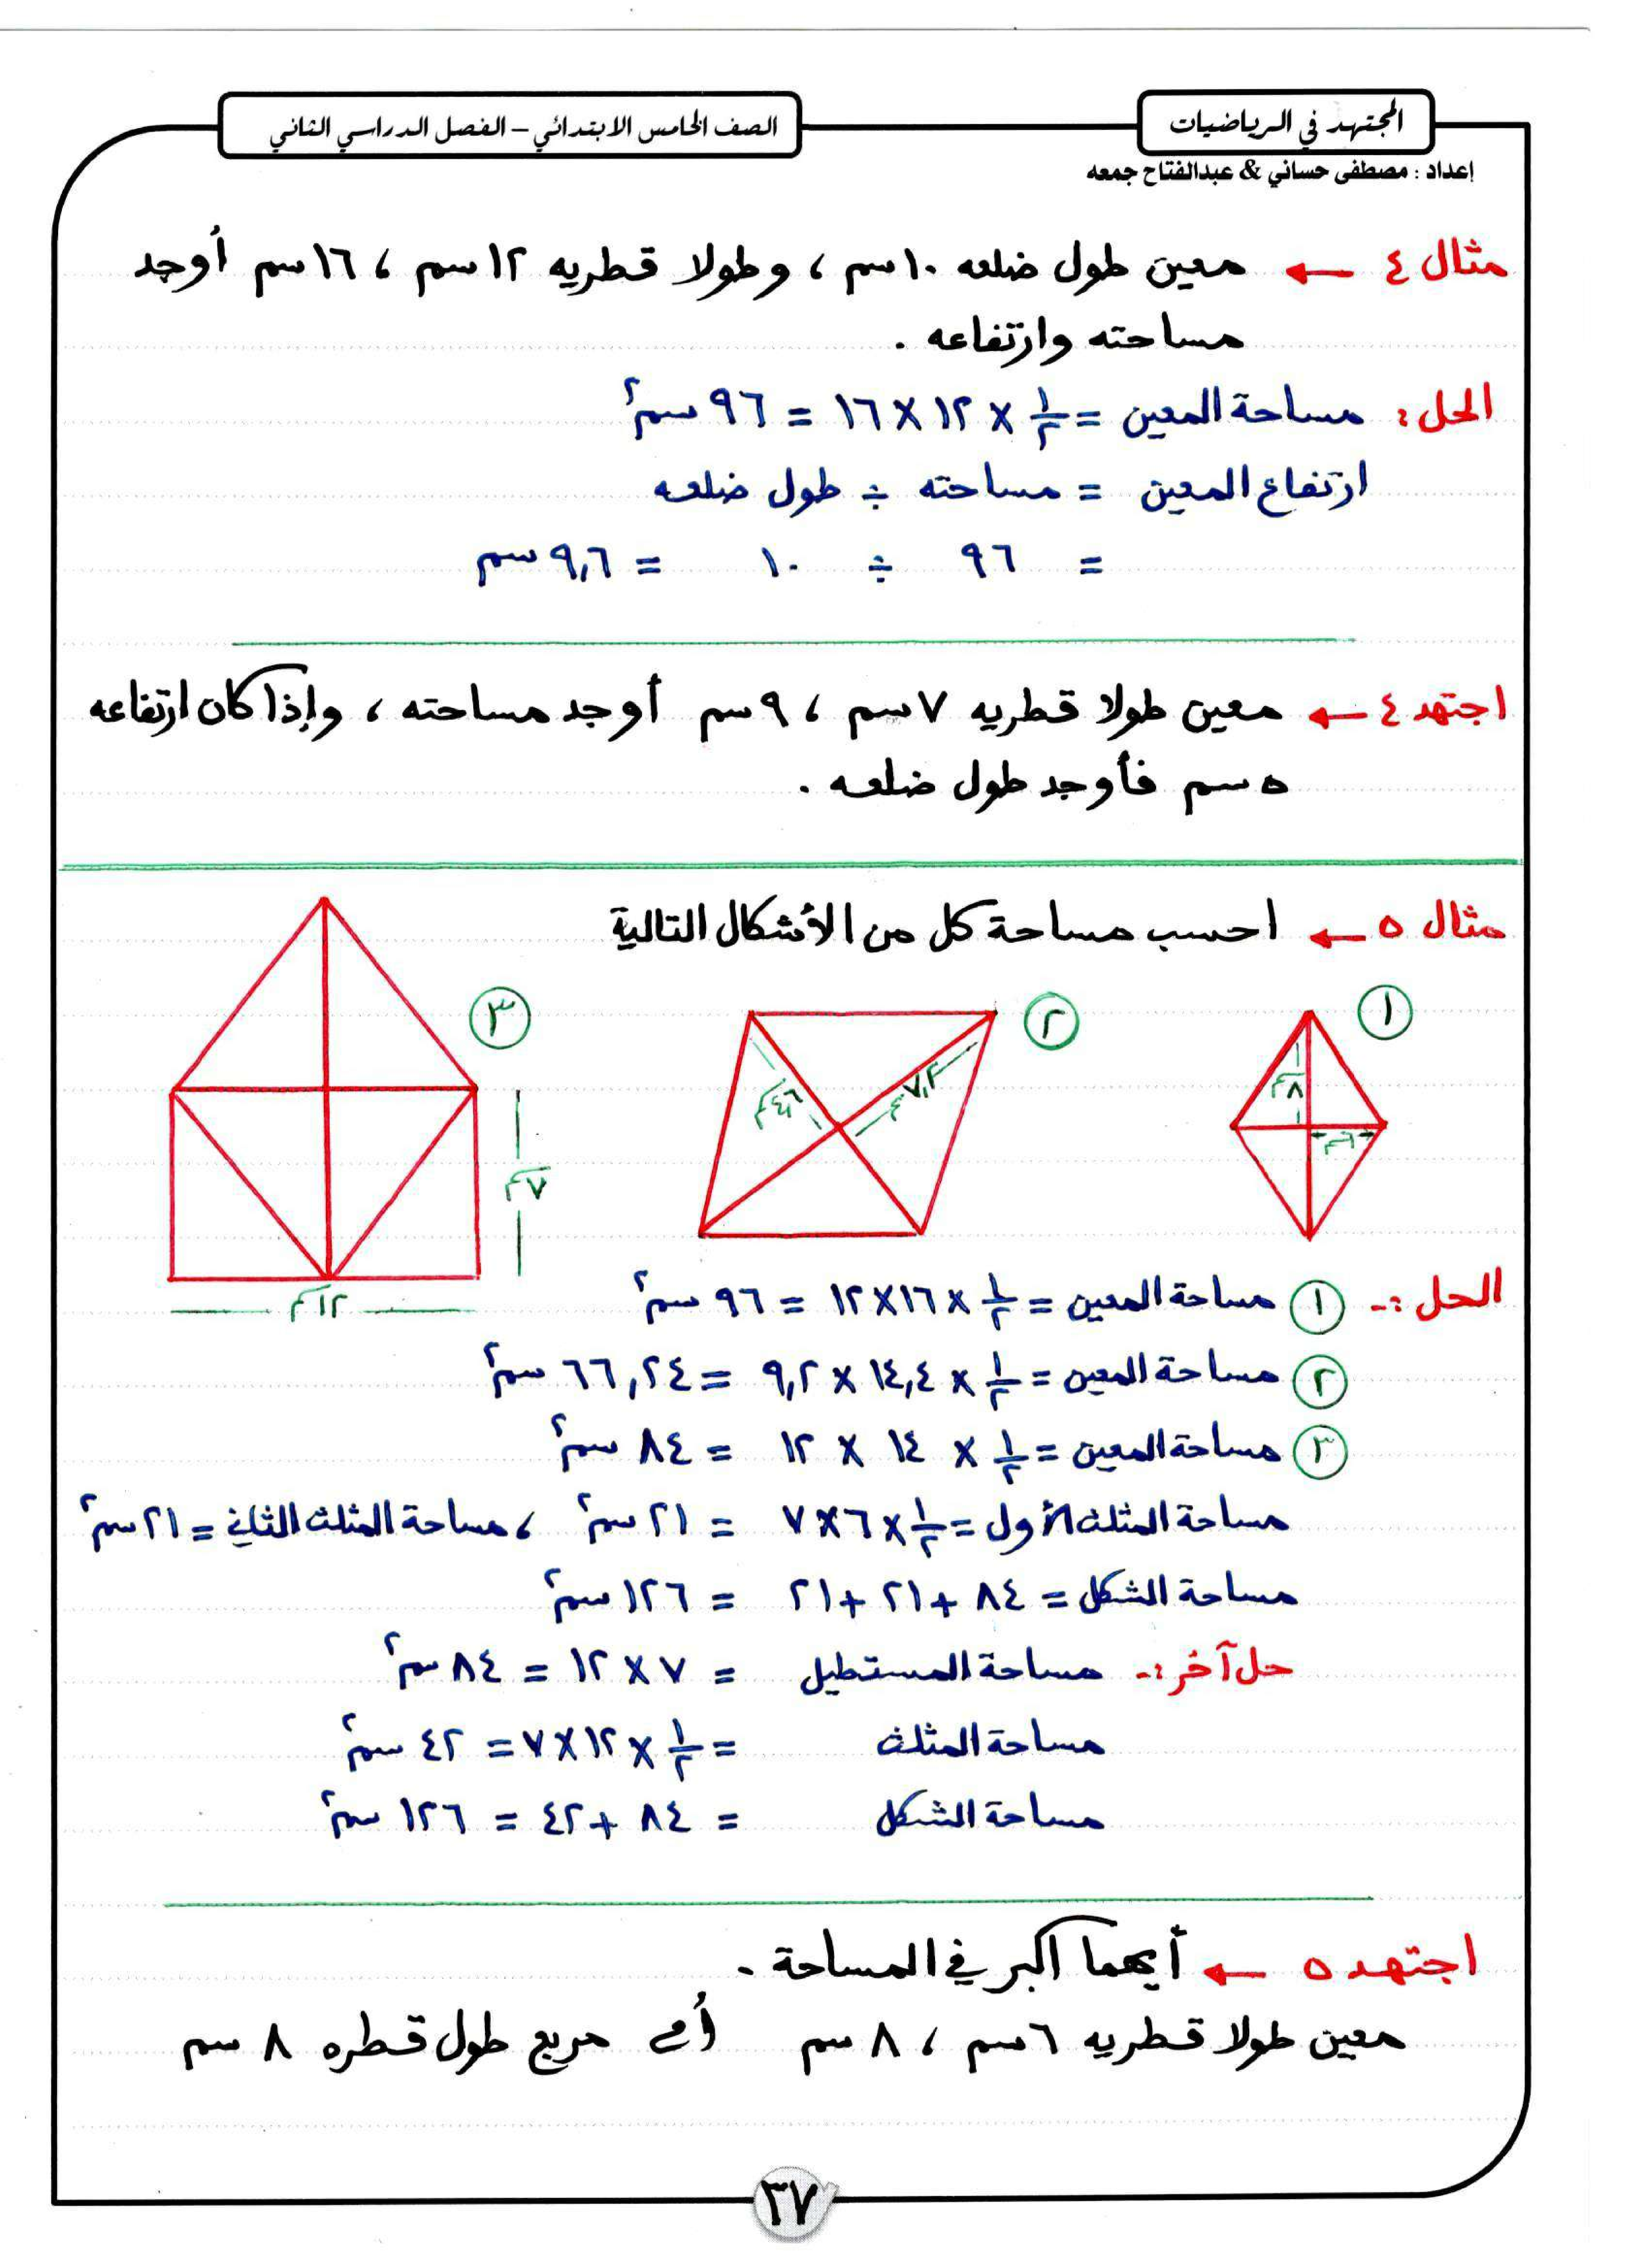 المجتهد في الرياضيات
الصف الخامس الابتدائي – الفصل الدراسي الثاني
إعداد : مصطفى حساني & عبدالفتاح جمعه
مثال ٤ ← معين طول ضلعه ١٠ سم ، وطولا قطريه ١٢ سم ، ١٦ سم أوجد
مساحته وارتفاعه .
الحل : مساحة المعين = ١/٢ × ١٢ × ١٦ = ٩٦ سم٢
ارتفاع المعين = مساحته ÷ طول ضلعه
= ٩٦ ÷ ١٠ = ٩,٦ سم
اجتهد ٤ ← معين طولا قطريه ٧ سم ، ٩ سم أوجد مساحته ، وإذا كان ارتفاعه
٥ سم فأوجد طول ضلعه .
مثال ٥ ← احسب مساحة كل من الأشكال التالية
١
٨سم
٦سم
٢
٧,٢سم
٤,٦سم
٣
٧سم
١٢سم
الحل :- ١ مساحة المعين = ١/٢ × ١٦ × ١٢ = ٩٦ سم٢
٢ مساحة المعين = ١/٢ × ١٤,٤ × ٩,٢ = ٦٦,٢٤ سم٢
٣ مساحة المعين = ١/٢ × ١٤ × ١٢ = ٨٤ سم٢
مساحة المثلث الأول = ١/٢ × ٦ × ٧ = ٢١ سم٢ ، مساحة المثلث الثاني = ٢١ سم٢
مساحة الشكل = ٨٤ + ٢١ + ٢١ = ١٢٦ سم٢
حل آخر :- مساحة المستطيل = ٧ × ١٢ = ٨٤ سم٢
مساحة المثلث = ١/٢ × ١٢ × ٧ = ٤٢ سم٢
مساحة الشكل = ٨٤ + ٤٢ = ١٢٦ سم٢
اجتهد ٥ ← أيهما أكبر في المساحة .
معين طولا قطريه ٦ سم ، ٨ سم أم مربع طول قطره ٨ سم
٣٧